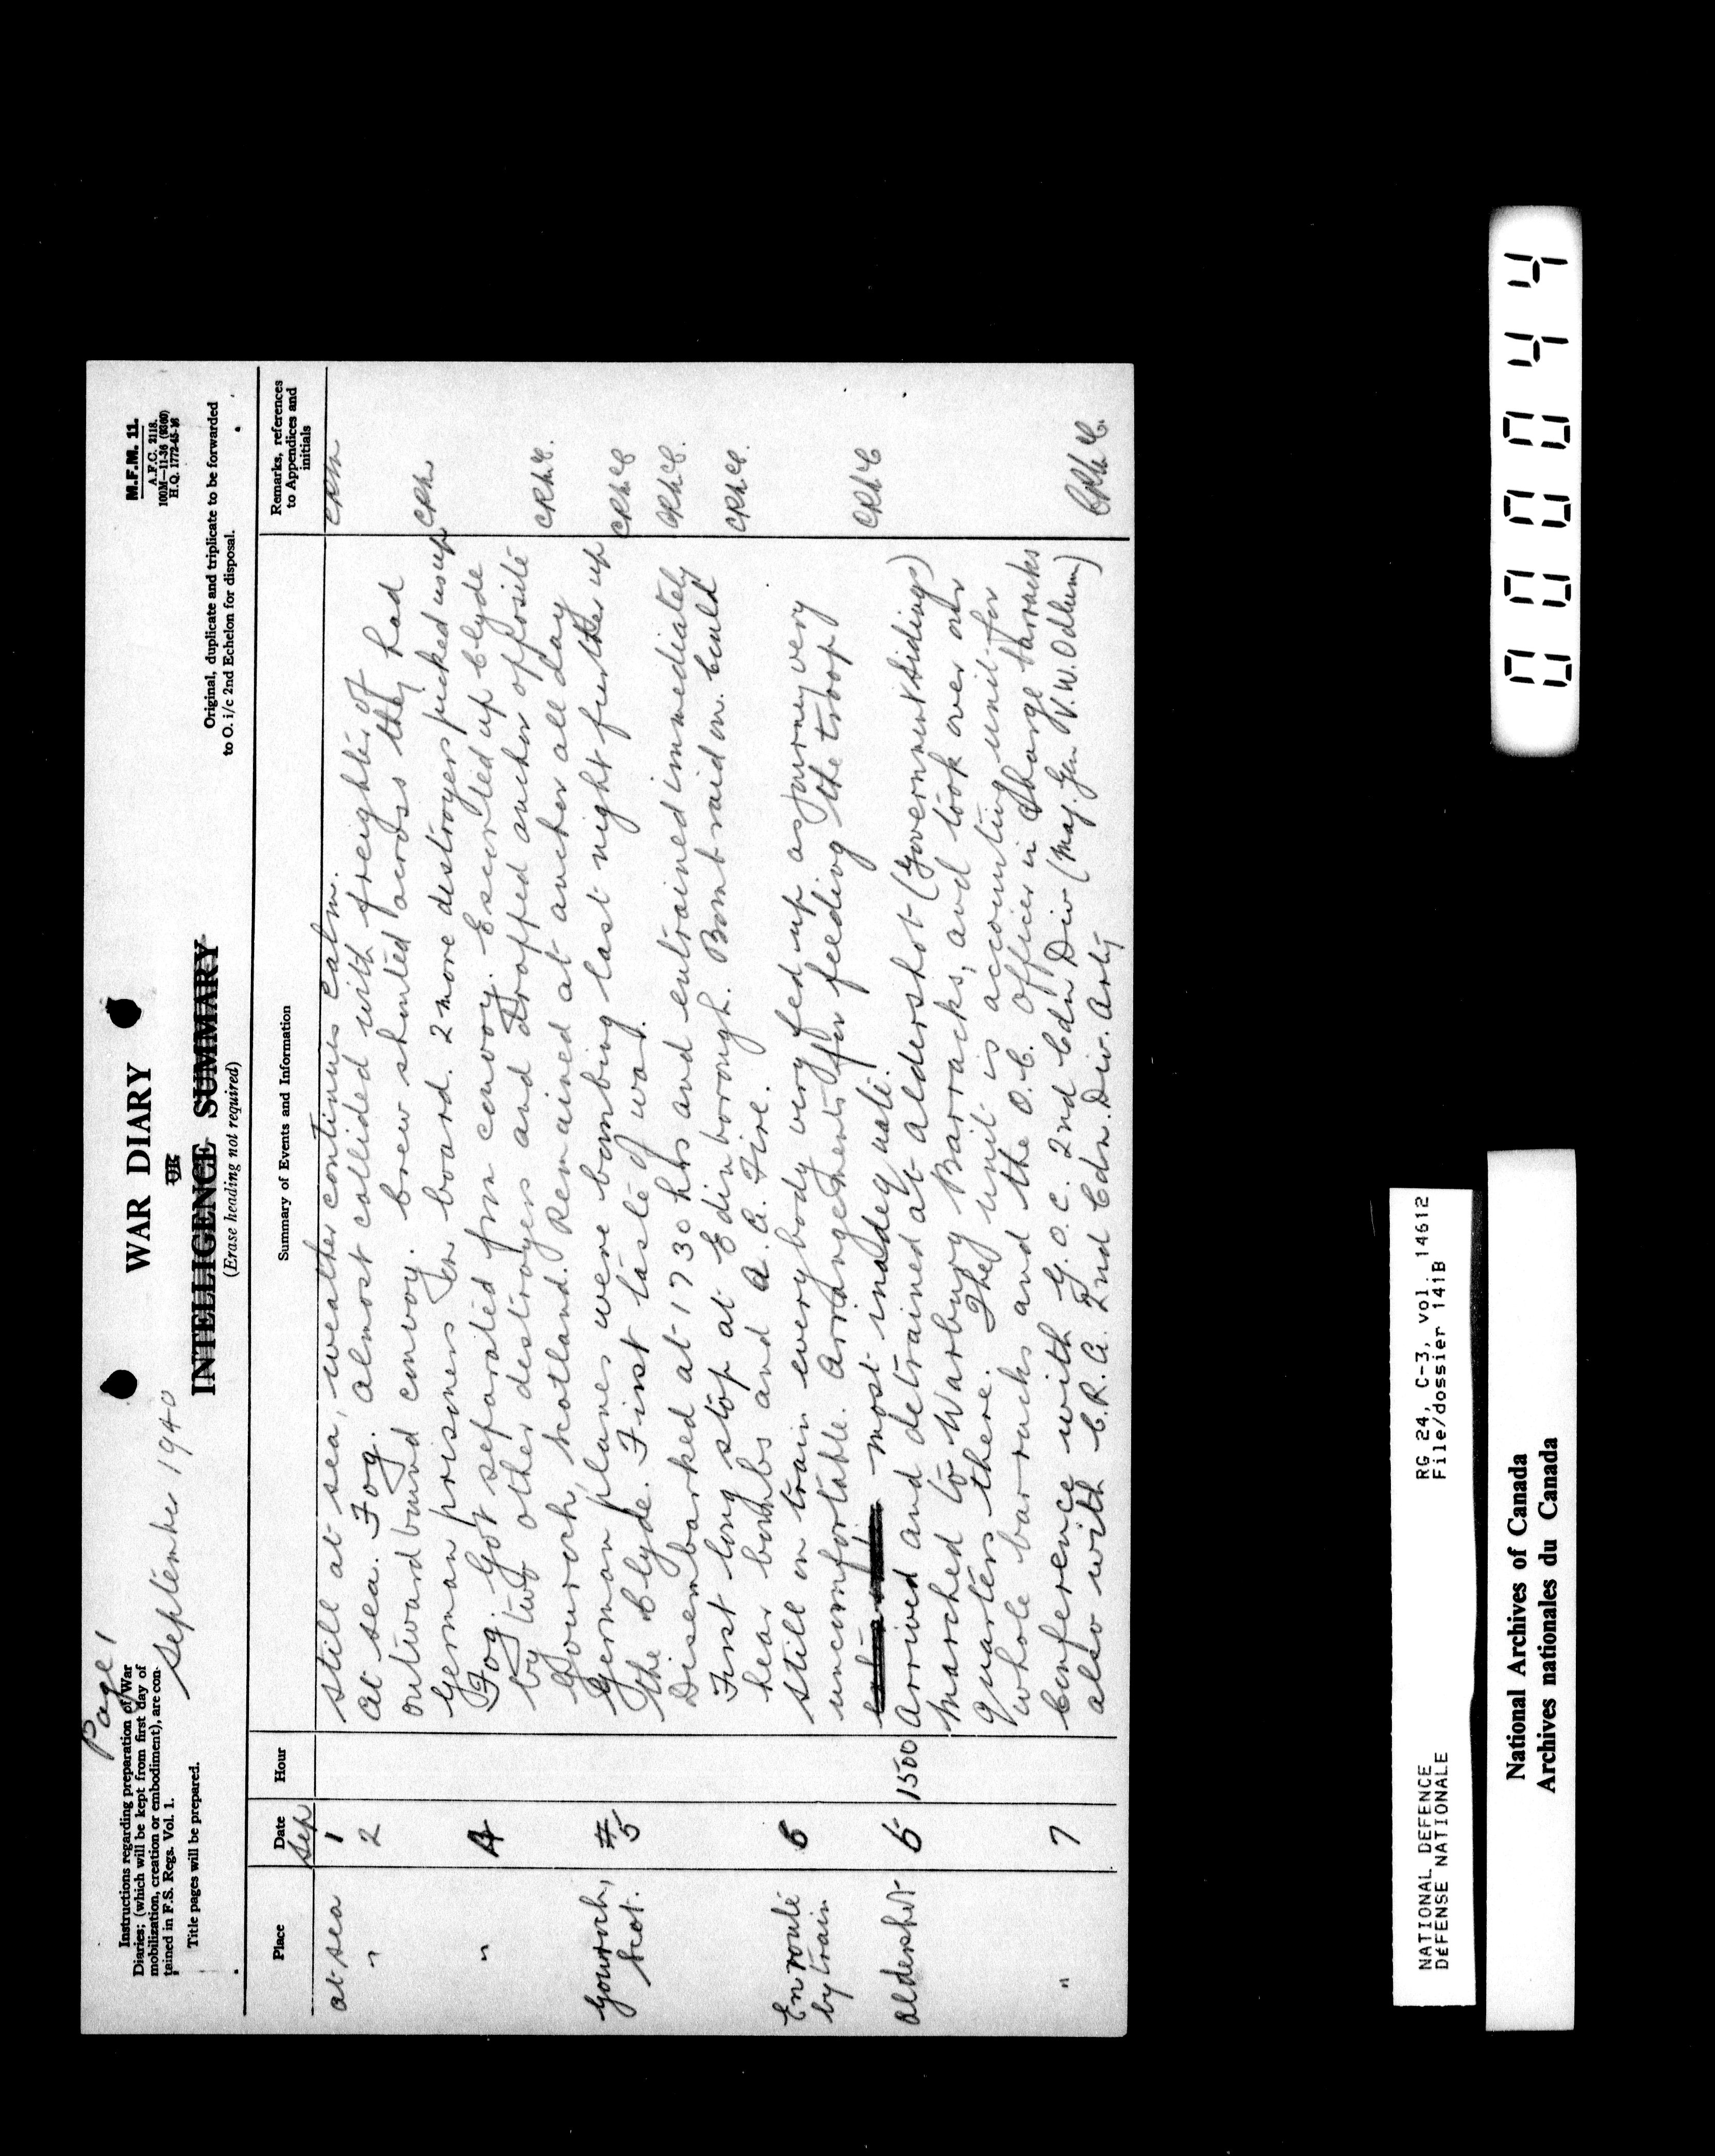 Page 1
Instructions regarding preparation of War
Diaries; (which will be kept from first day of
mobilization, creation or embodiment), are con-
tained in F.S. Regs. Vol. 1.
Title pages will be prepared.
September 1940
WAR DIARY
OR
INTELLIGENCE SUMMARY
(Erase heading not required)
M.F.M. 11.
A.F.C. 2118.
100M—11-36 (9360)
H.Q. 1772-45-16
Original, duplicate and triplicate to be forwarded
to O. i/c 2nd Echelon for disposal.
Place Date Hour Summary of Events and Information Remarks, references to Appendices and initials
Sep
at sea 1 still at sea, weather continues calm.
" 2 at sea. Fog. almost collided with freighter of
outward bound convoy. Crew shouted across they had
German prisoners on board. 2 more destroyers picked us up
" 4 Fog. Got separated from convoy. Escorted up Clyde
by two other destroyers and dropped anchor opposite
Gourock, Scotland. Remained at anchor all day
Gourock, 5 German planes were bombing last night further up
Scot. the Clyde. First taste of war.
Disembarked at 1730 hrs and entrained immediately
First long stop at Edinborough. Bomb raid on. Could
hear bombs and A.A. Fire.
En route 6 still on train everybody very fed up as journey very
by train uncomfortable. Arrangements for feeding the troops
most inadequate.
Aldershot 6 1500 Arrived and detrained at Aldershot (Government Sidings)
Marched to Warburg Barracks, and took over our
quarters there. The unit is accounting unit for
whole barracks and the O.C. Officer i/c Charge barracks
" 7 Conference with G.O.C. 2nd Cdn Div (Maj. Gen V.W. Odlum)
also with C.R.A. 2nd Cdn. Div. Arty
NATIONAL DEFENCE
DÉFENSE NATIONALE
RG 24, C-3, vol. 14612
File/dossier 141B
National Archives of Canada
Archives nationales du Canada
000044